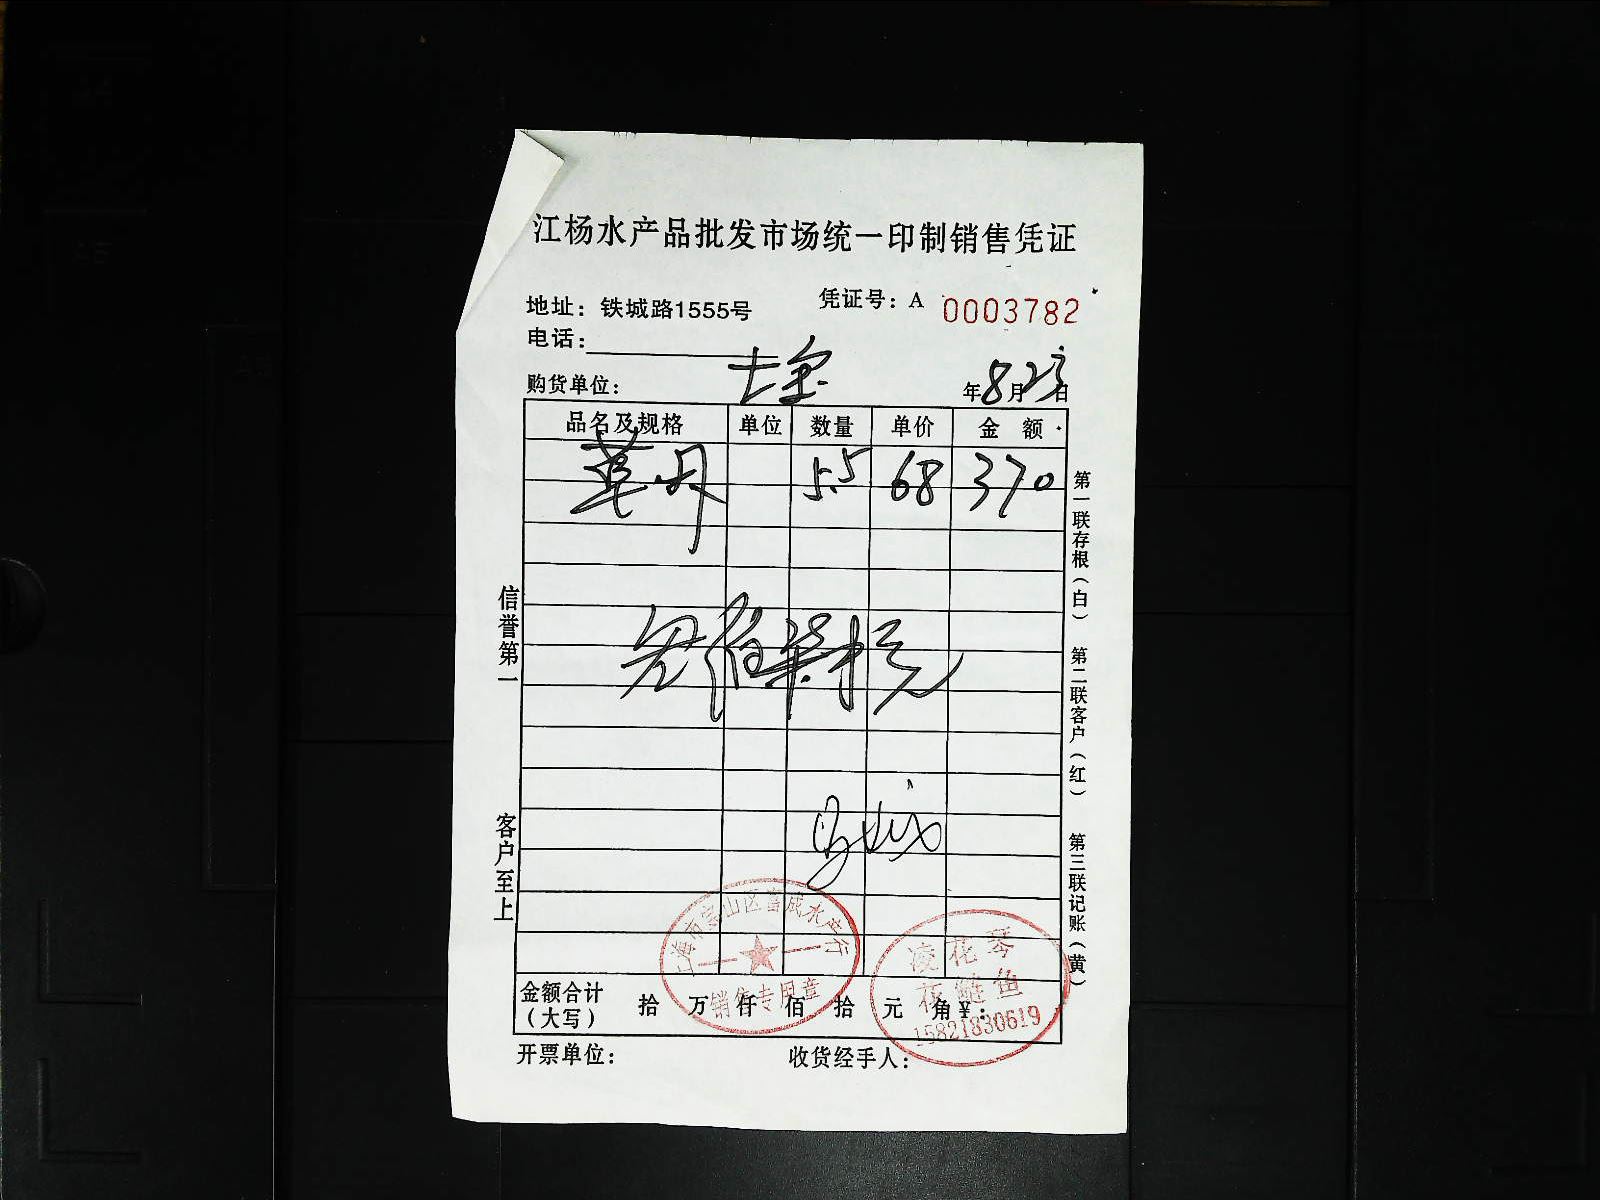 江杨水产品批发市场统一印制销售凭证
地址：铁城路1555号
凭证号：A 0003782
电话：
购货单位：
年8月23日
品名及规格 单位 数量 单价 金 额
5.5 68 370
信誉第一
客户至上
第一联存根（白）
第二联客户（红）
第三联记账（黄）
上海市宝山区富成水产行
销售专用章
凌花琴
花鲢鱼
15821830619
金额合计（大写） 拾 万 仟 佰 拾 元 角 ¥：
开票单位：
收货经手人：